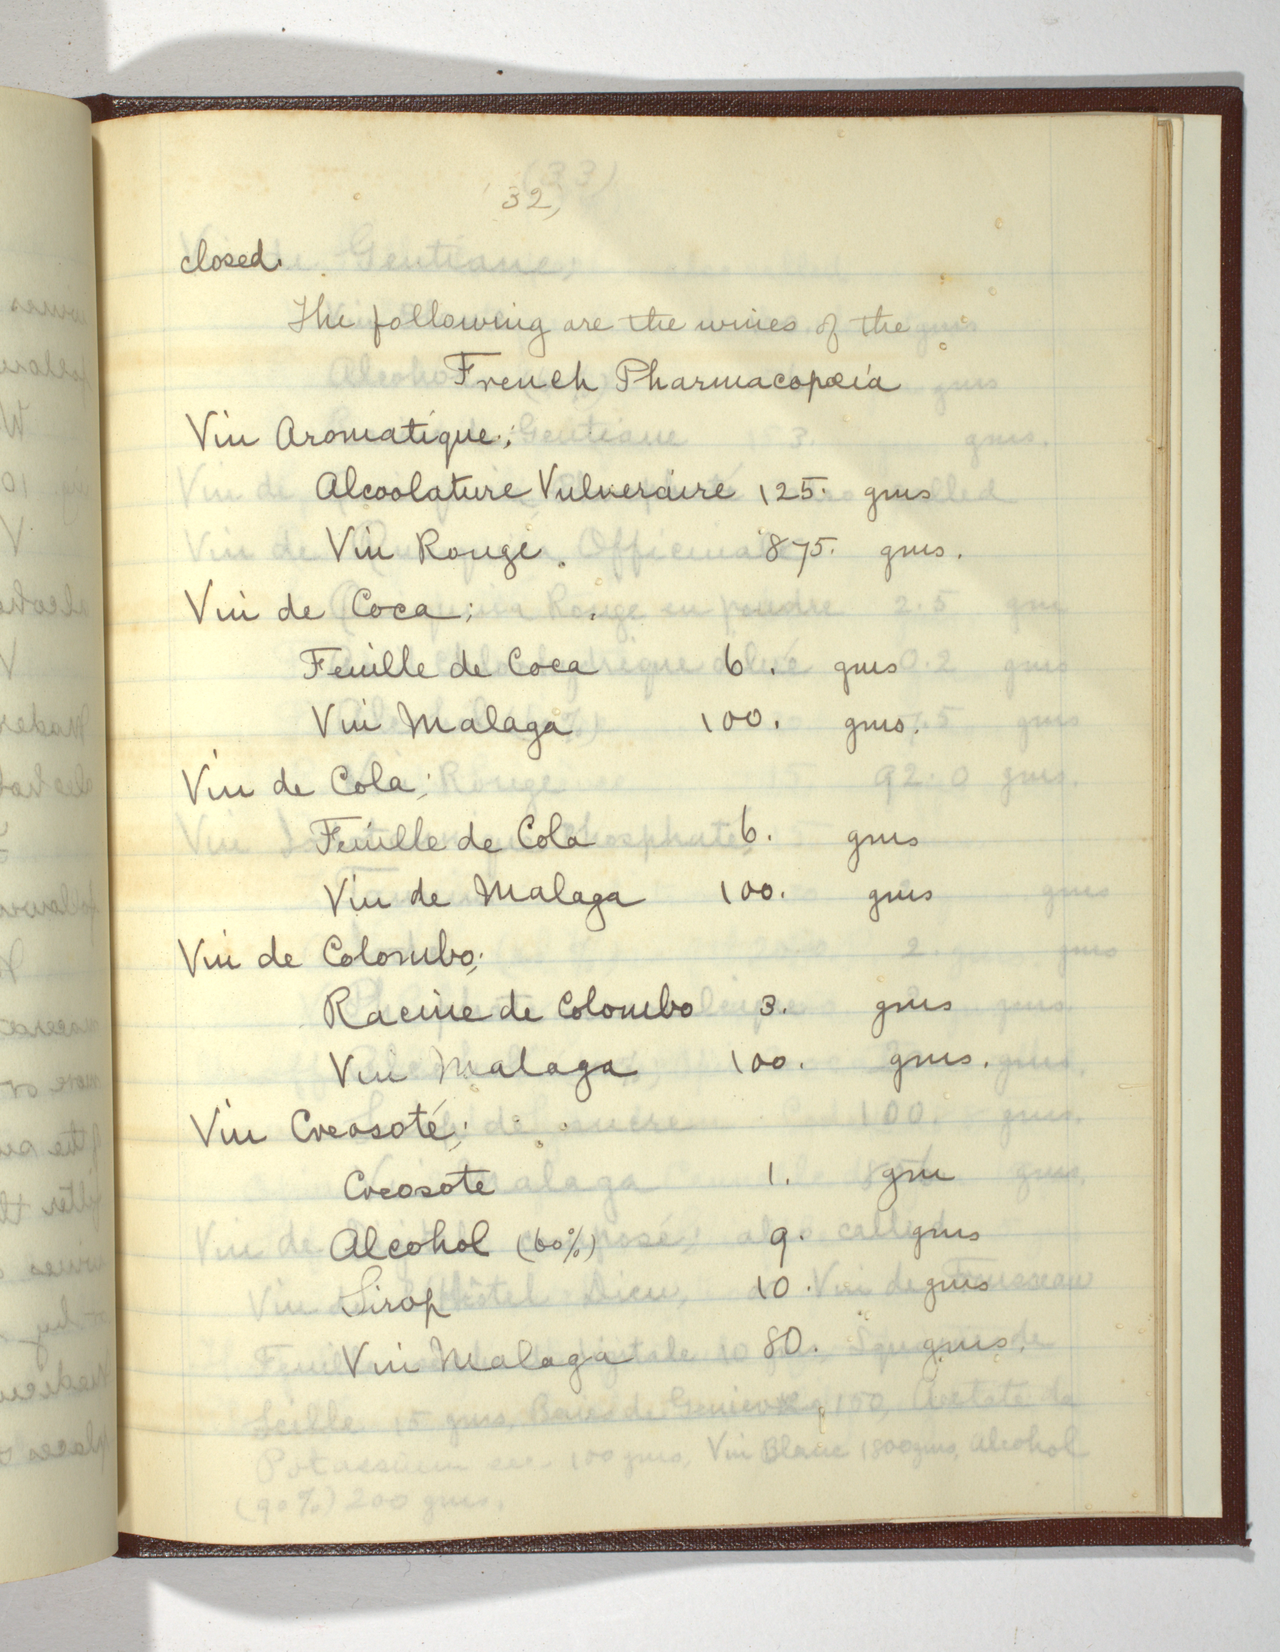 32)
closed.
The following are the wines of the
French Pharmacopœia
Vin Aromatique;
Alcoolature Vulneraire 125. gms
Vin Rouge. 875. gms.
Vin de Coca;
Feuille de Coca 6. gms
Vin Malaga 100. gms.
Vin de Cola;
Feuille de Cola 6. gms
Vin de Malaga 100. gms
Vin de Colombo;
Racine de Colombo 3. gms
Vin Malaga 100. gms.
Vin Creosoté;
Creosote 1. gm
Alcohol (60%) 9. gms
Sirop 10. gms
Vin Malaga 80. gms.